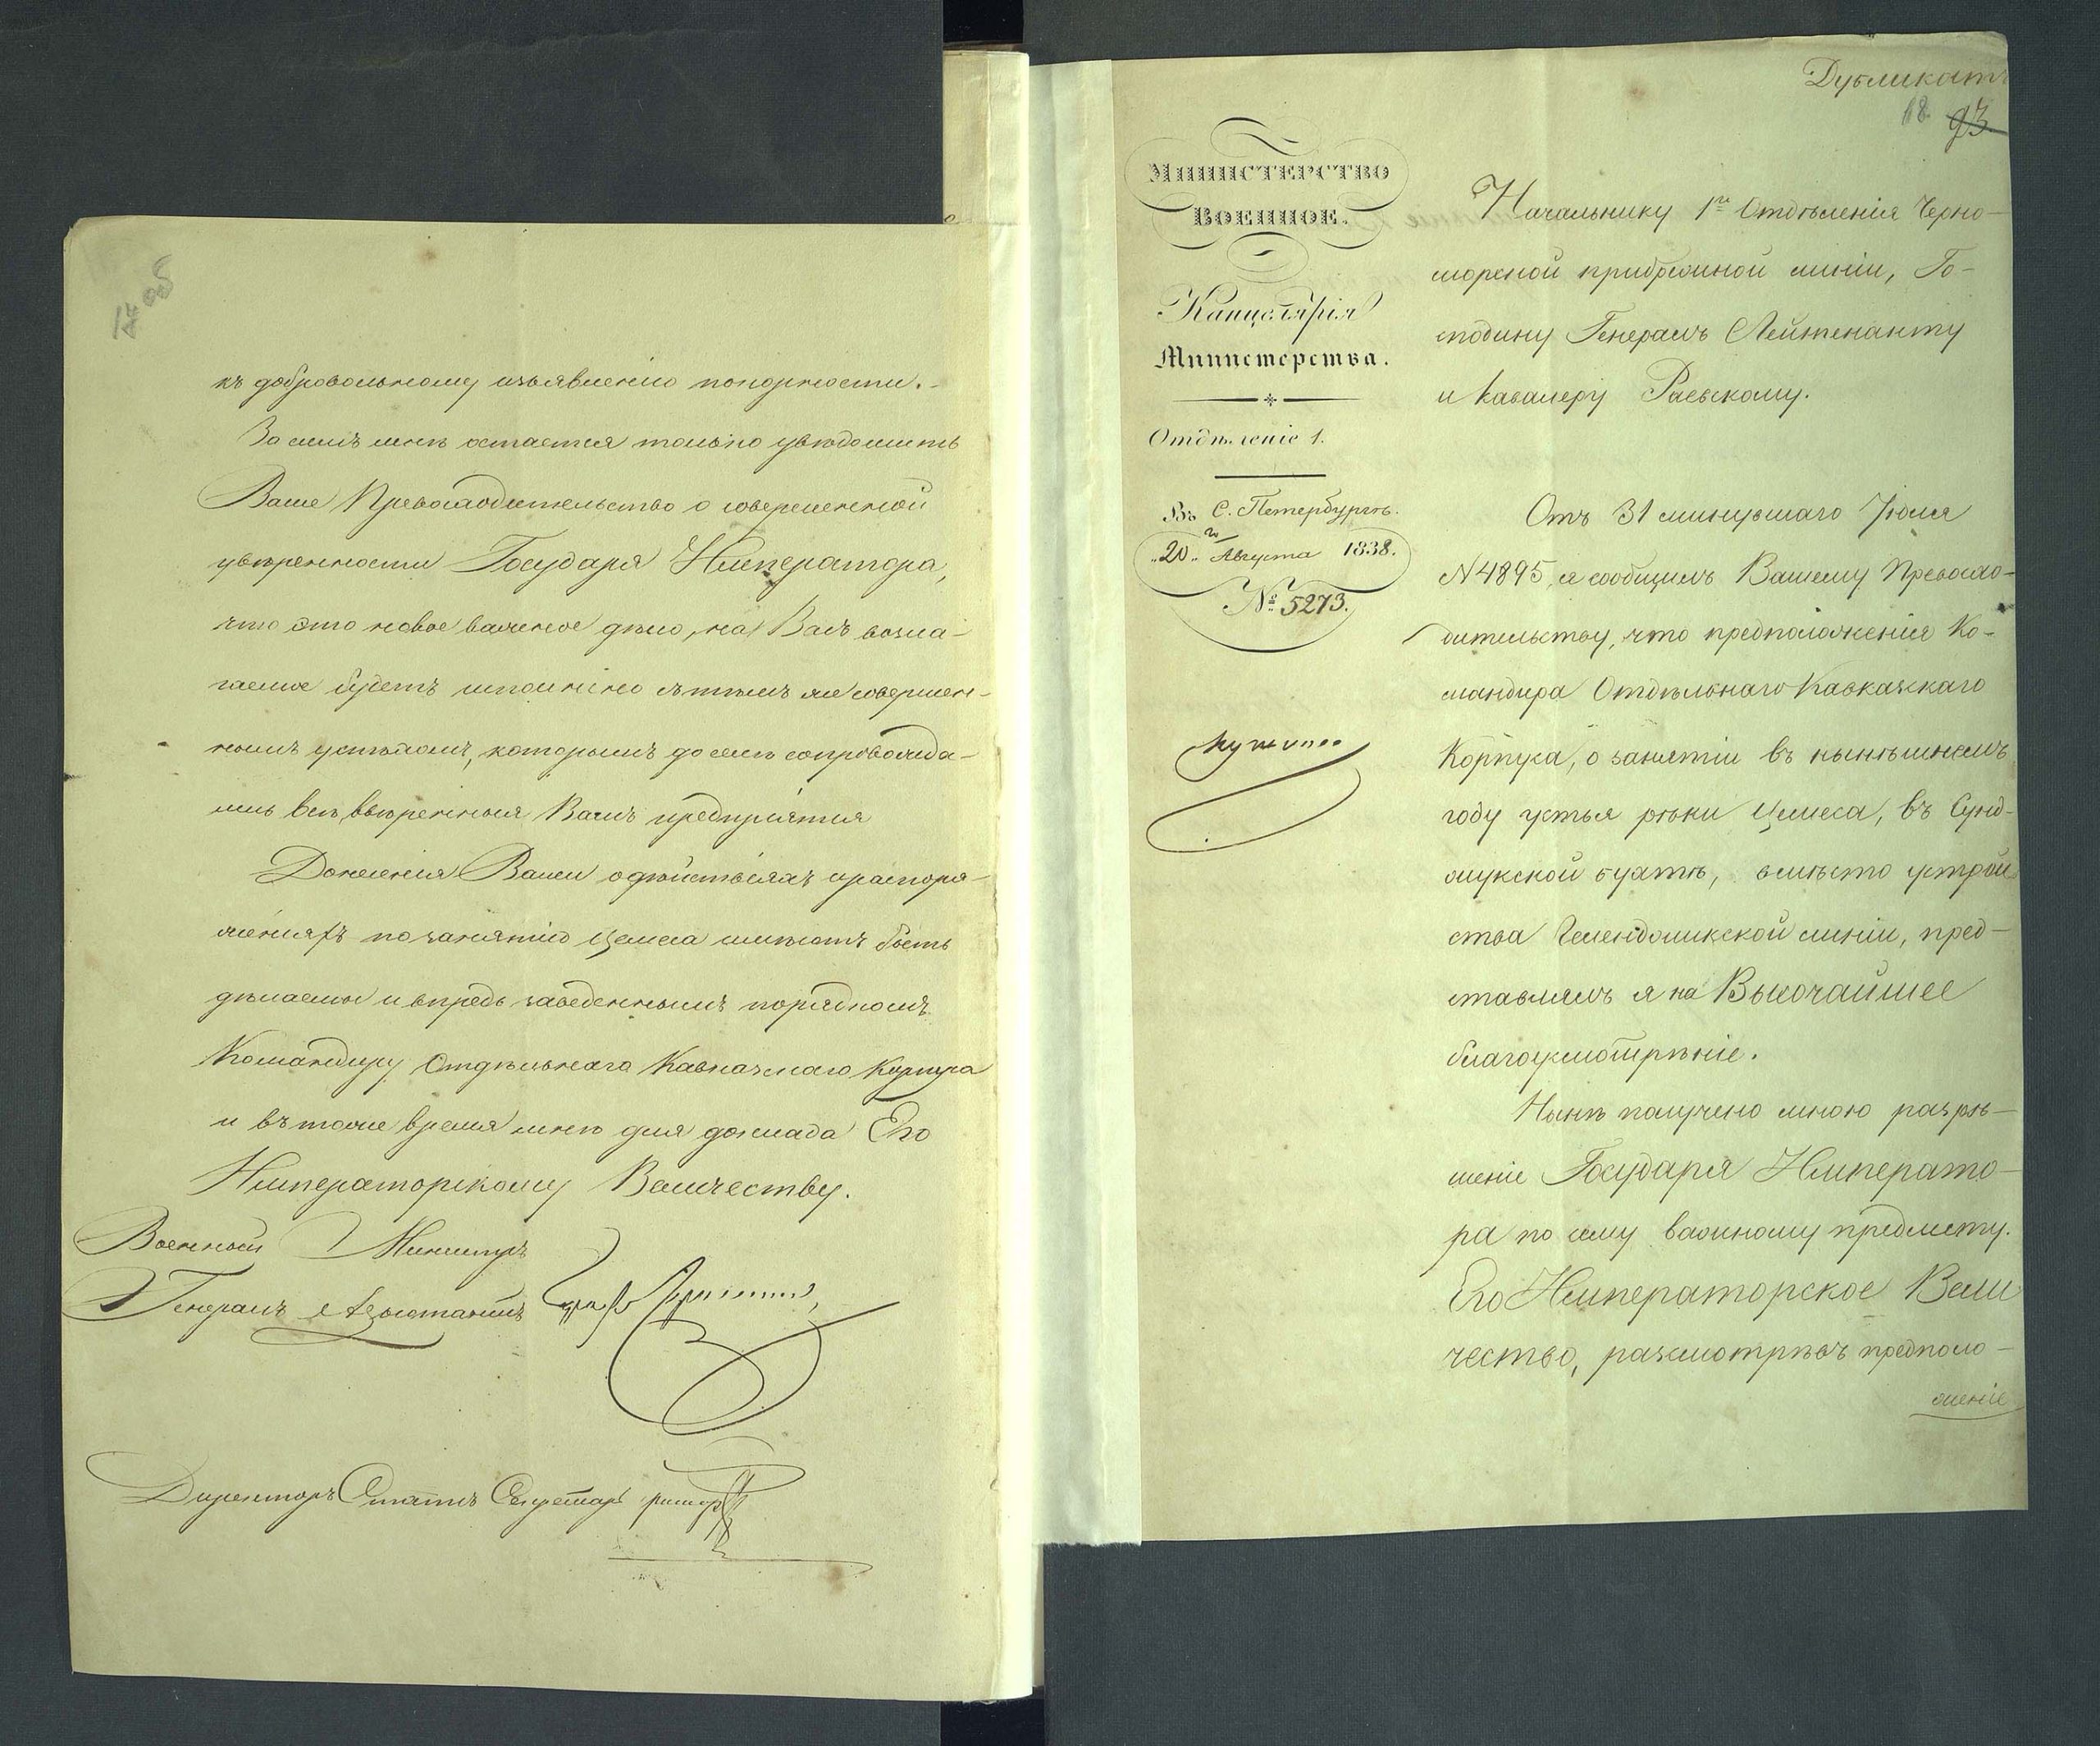 къ добровольному изъявленію покорности.
За симъ мнѣ остается только увѣдомить
Ваше Превосходительство о совершенной
увѣренности Государя Императора,
что это новое важное дѣло, на Васъ возла-
гаемое будетъ исполнено съ тѣмъ же совершен-
нымъ успѣхомъ, которымъ до селѣ сопровожда-
лись всѣ ввѣренныя Вамъ предпріятія
Донесенія Ваши о дѣйствіяхъ и распоря-
женіяхъ по занятію Цемеса имѣютъ быть
дѣлаемы и впредь заведеннымъ порядкомъ
Командиру Отдѣльнаго Кавказскаго Корпуса
и въ тоже время мнѣ для доклада Его
Императорскому Величеству.
Военный Министръ
Генералъ Адъютантъ Графъ Чернышевъ
Директоръ Статсъ Секретарь
Дубликатъ
18. 93
МИНИСТЕРСТВО
ВОЕННОЕ.
Канцелярія
Министерства.
Отдѣленіе 1.
Въ С. Петербургѣ.
„20„ го Августа 1838.
№ 5273.
Начальнику 1го Отдѣленія Черно-
морской прибрежной линіи, Го-
сподину Генералъ Лейтенанту
и Кавалеру Раевскому.
Отъ 31 минувшаго Іюля
N 4895, я сообщилъ Вашему Превосхо-
дительству, что предположенія Ко-
мандира Отдѣльнаго Кавказскаго
Корпуса, о занятіи въ нынѣшнемъ
году устья рѣки Цемеса, въ Суд-
жукской бухтѣ, вмѣсто устрой
ства Геленджикской линіи, пред-
ставлялъ я на Высочайшее
благоусмотрѣніе.
Нынѣ получено мною разрѣ-
шеніе Государя Императо-
ра по сему важному предмету.
Его Императорское Вели
чество, разсмотрѣвъ предполо-
женіе